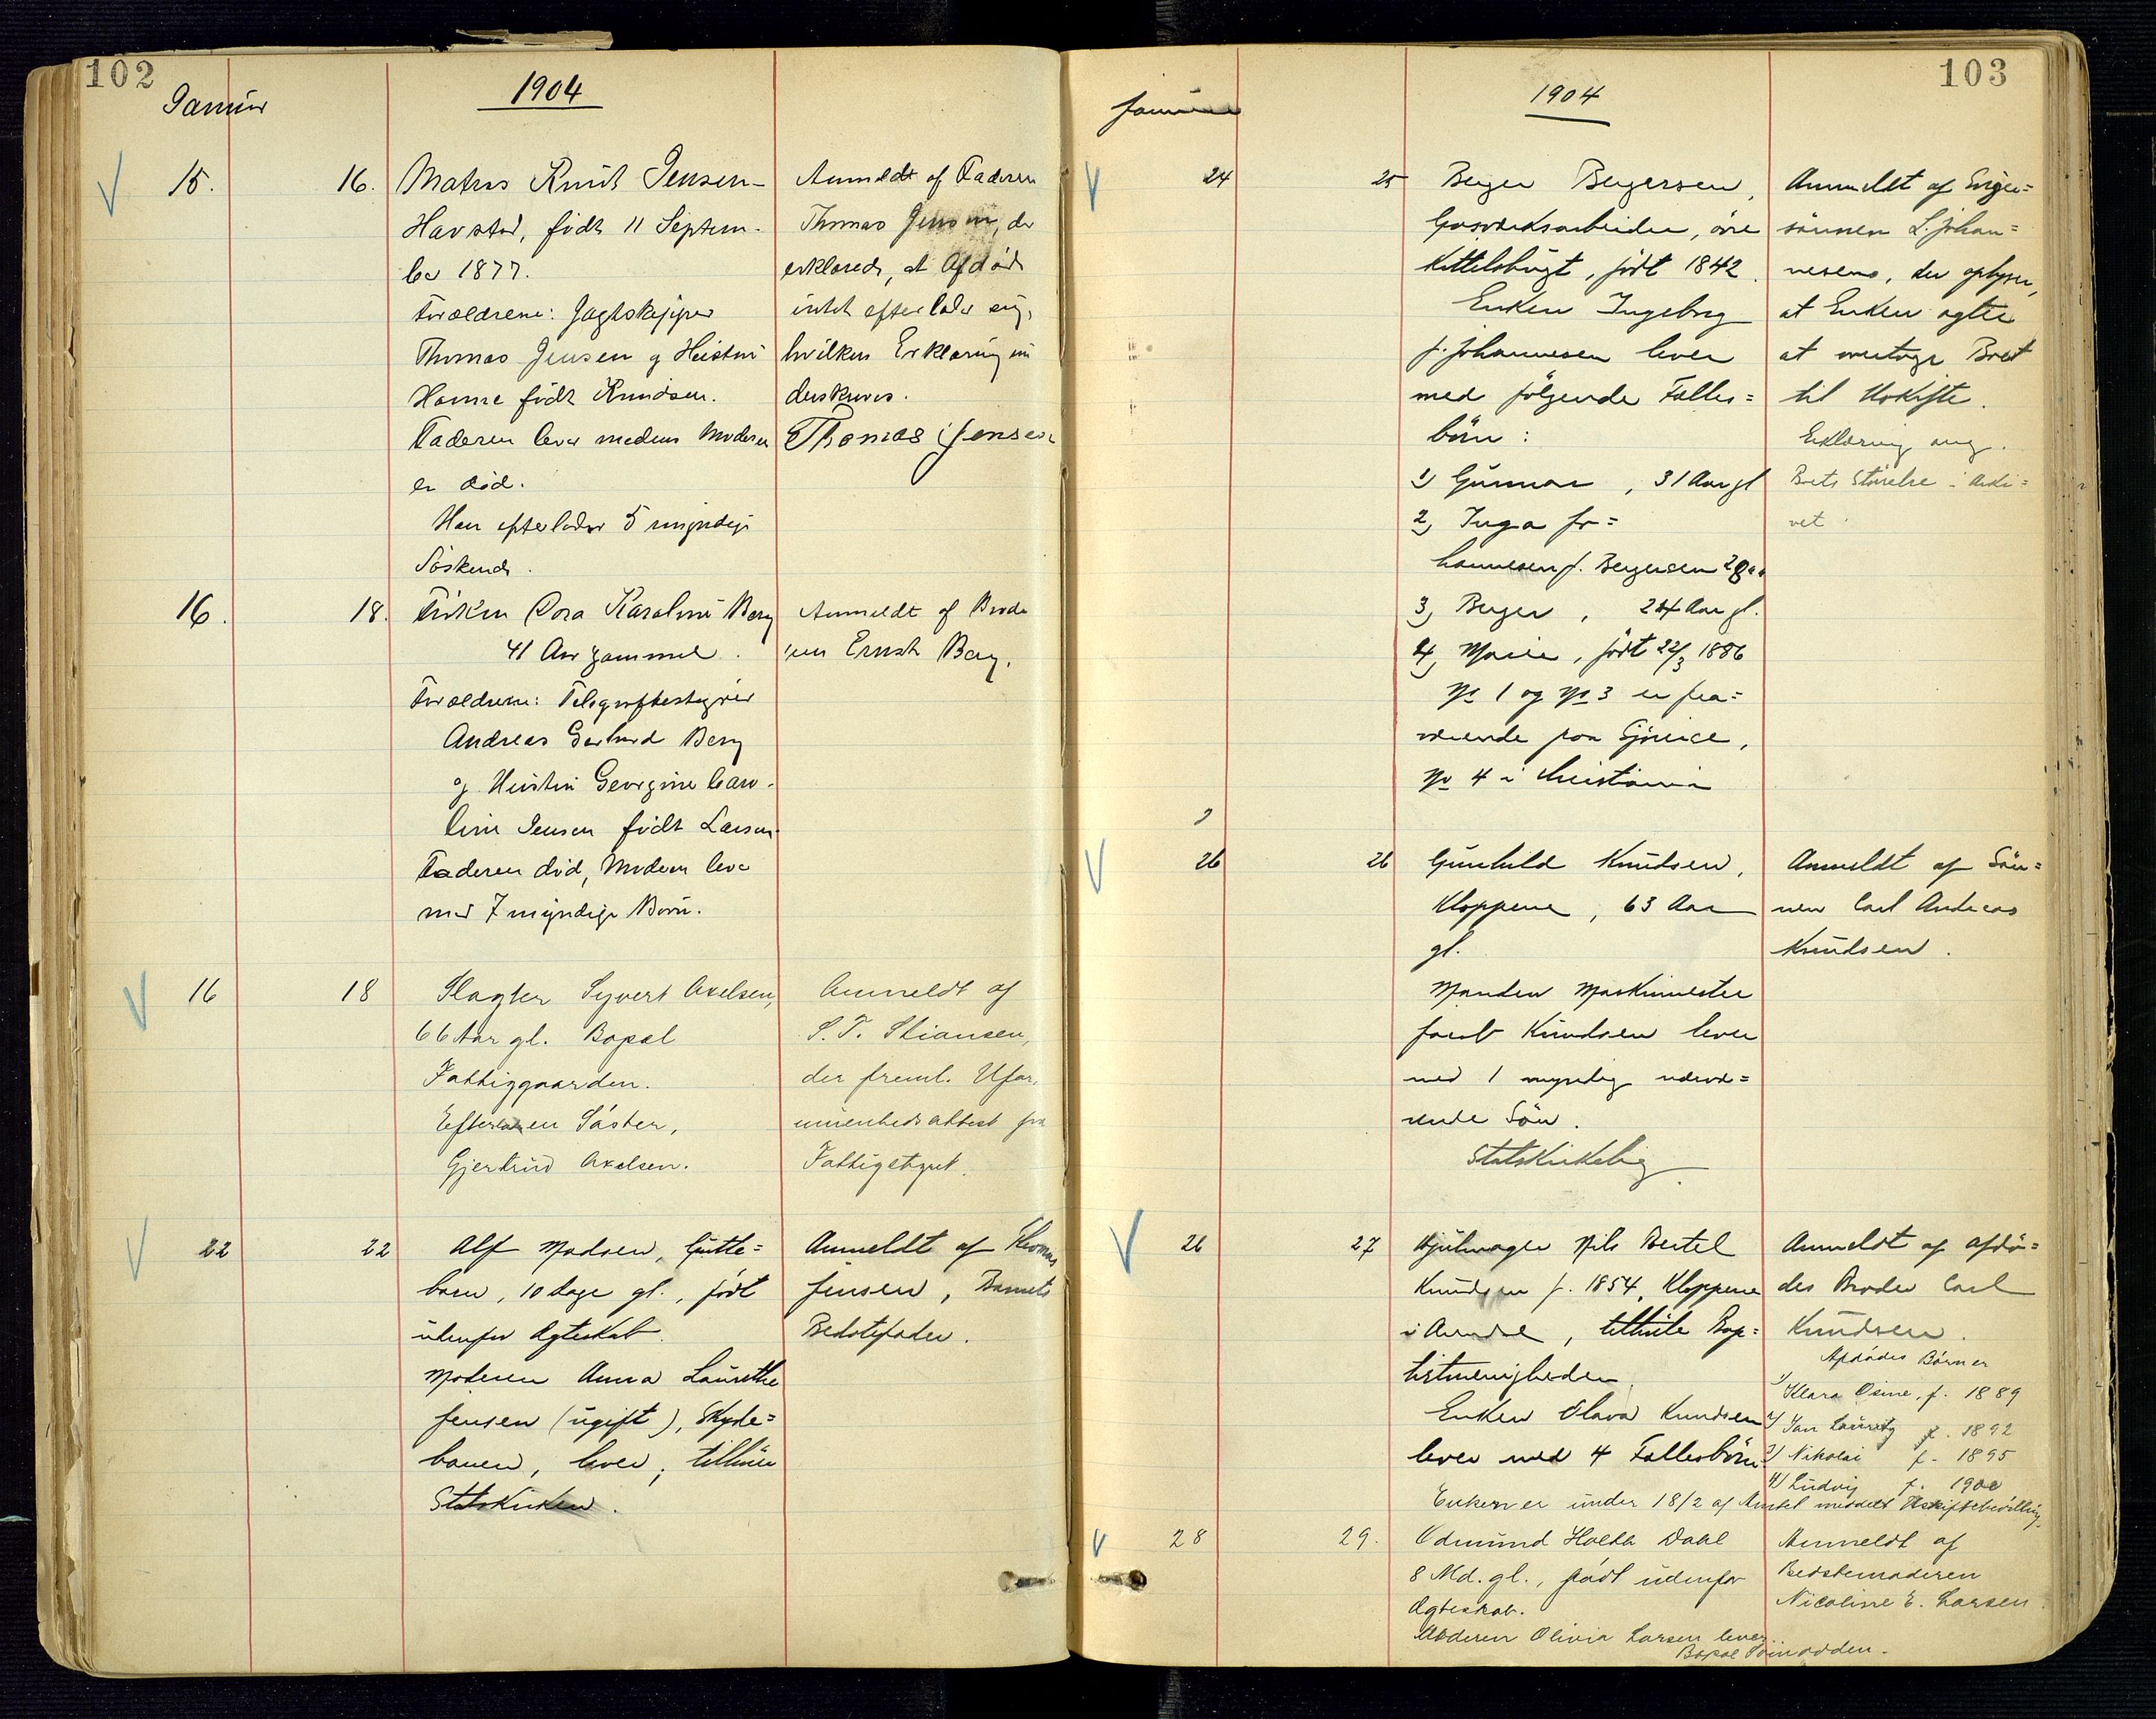 102
Januar
1904
15.
16.
Matros Knut Jensen-
Havstad, født 11 Septem-
ber 1877.
Forældrene: Jagtskipper
Thomas Jensen og Hustru
Hanne født Knudsen.
Faderen lever medens Moderen
er død.
Han efterlader 5 myndige
Søskende.
Anmeldt af Faderen
Thomas Jensen, der
erklærede, at Afdøde
intet efterlader sig,
hvilken Erklæring un
derskrives.
Thomas Jensen
16.
18.
Frøken Cora Karoline Berg
41 Aar gammel.
Forældrene: Telegrafbestyrer
Andreas Gerhard Berg
og Hustru Georgine Caro-
line Jensen født Larsen.
Faderen død, Moderen lever
med 7 myndige Børn.
Anmeldt af Brode
ren Ernst Berg.
16
18
Slagter Syvert Axelsen,
66 Aar gl. Bopæl
Fattiggaarden.
Efterl. en Søster,
Gjertrud Axelsen.
Anmeldt af
S. T. Stiansen,
der freml. Ufor-
muenhedsattest fra
Fattigstyret.
22
22
Alf Madsen, Gutte=
barn, 10 dage gl., født
udenfor Ægteskab.
Moderen Anna Laurethe
Jensen (ugift), Skyde=
banen, lever; tilhører
Statskirken.
Anmeldt af Thomas
Jensen, Barnets
Bedstefader.
103
Januar
1904
24
25
Berger Bergersen,
Gasværksarbeider, øvre
Kittelsbugt, født 1842.
Enken Ingeborg
f. Johannesen lever
med følgende Fælles=
børn:
1) Gunnar, 31 Aar gl
2) Inga Jo=
hannesen f. Bergersen 28 a
3) Berger, 24 Aar gl.
4) Marie, født 22/3 1886
No 1 og No 3 er fra=
værende paa Sjøreise,
No 4 i Kristiania
Anmeldt af Sviger=
sønnen L. Johan=
nesens, der oplyser,
at Enken agter
at overtage Boet
til Uskifte.
Erklæring ang.
Boets Størrelse i Arki=
vet
26
26
Gunhild Knudsen,
Kloppene, 63 Aar
gl.
Manden Maskinmester
Jacob Knudsen lever
med 1 myndig udenb=
ende Søn.
Statskirkelig
Anmeldt af Søn=
nen Carl Andreas
Knudsen.
26
27
Hjulmager Nils Bertel
Knudsen f. 1854, Kloppene
i Arendal, tilhørte Bap=
tistmenigheden.
Enken Olava Knudsen
lever med 4 Fællesbørn
Anmeldt af Afdø=
des Broder Carl
Knudsen.
Afdødes Børn er
1) Klara Osine, f. 1889
2) Jan Lauritz f. 1892
3) Nikolai f. 1895
4) Ludvig f. 1900
Enken er under 18/2 af Amtet meddelt Uskiftebevilling.
28
29.
Odmund Holth Dahl
8 Md. gl., født udenfor
Ægteskab.
Moderen Olivia Larsen lever.
Bopæl
Anmeldt af
Bedstemoderen
Nicoline E. Larsen.